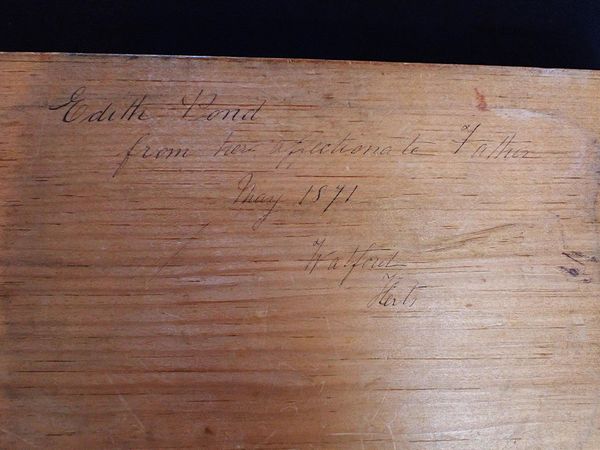 Edith Pond
from her affectionate Father
May 1871
Watford
Herts